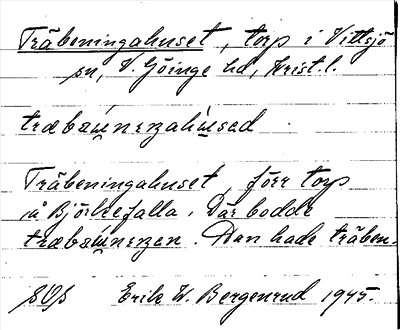 Träbeningahuset, torp i Vittsjö
sn, V. Göinge hd, Krist. l.
Träbeningahuset, förr torp
på Björkefalla. Där bodde
Han hade träben.
Erik W. Bergenrud 1945.